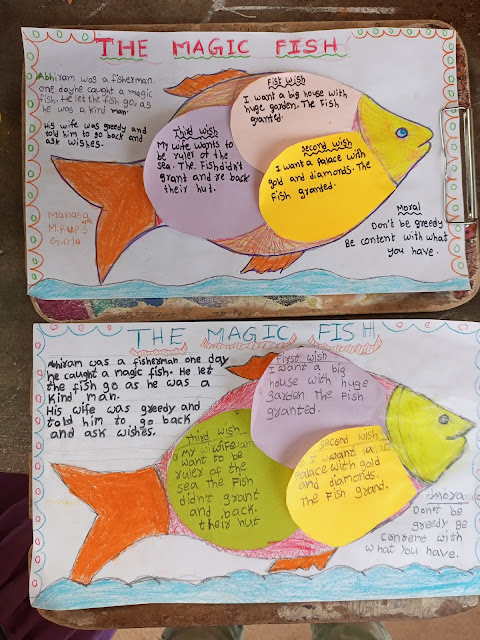 THE MAGIC FISH
Abhiram was a fisherman
one dayhe caught a magic
fish. He let the fish go, as
he was a kind man.
His wife was greedy and
told him to go back and
ask wishes.
Fist wish
I want a big house with
huge garden. The Fish
granted.
Third wish
My wife wants to
be ruler of the
sea. The Fishdidn't
grant and re back
their hut.
Second wish
I want a Palace with
gold and diamonds. The
Fish granted.
Manasa 4th
M.P.U.P.S
Gurla
Moral
Don't be greedy
Be content with what
you have.
THE MAGIC FISH
Abhiram was a fisherman one day
he caught a magic fish. He let
the fish go as he was a
kind man.
His wife was greedy and
told him to go back
and ask wishes.
First wish
I want a big
house with huge
garden The Fish
granted.
Third wish
My wife
want to be
ruler of the
sea The Fish
didn't grant
and back.
their hut
Second wish
I want a
Palace with gold
and diamonds.
The Fish grand.
Moral
Don't be
greedy Be
content with
what you have.